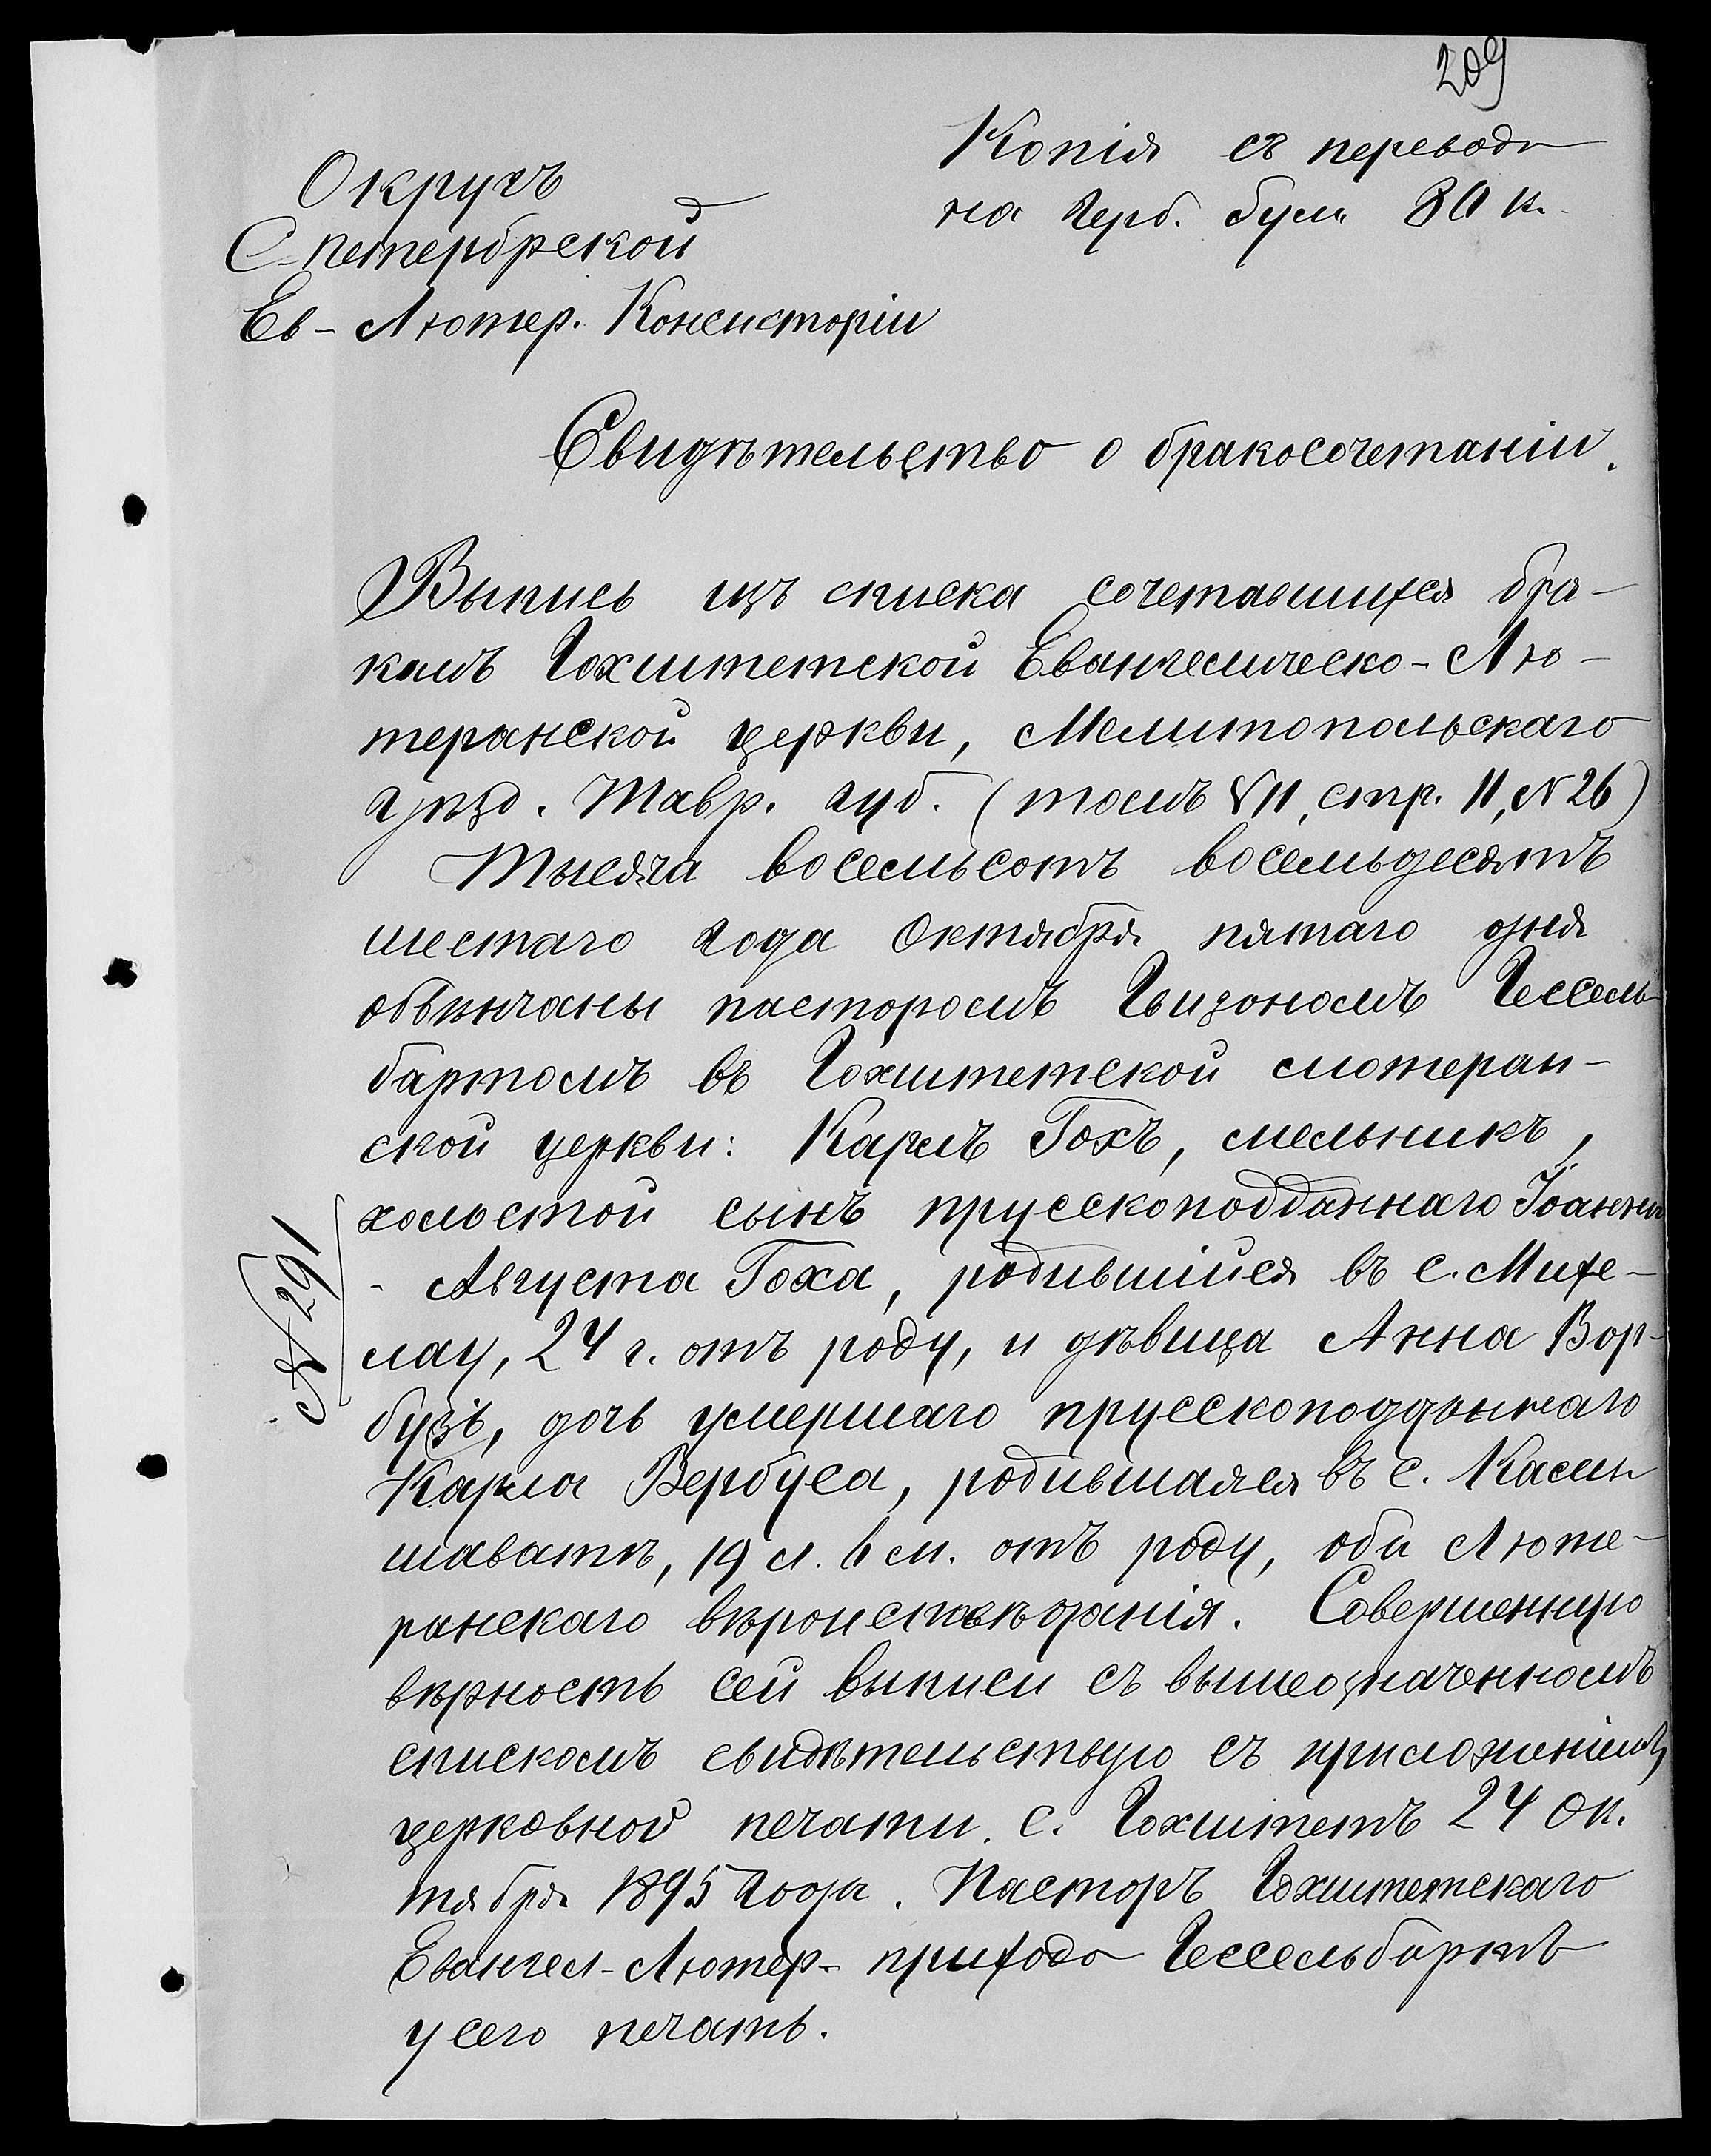 209
Копія съ перевода
на Герб. бум. 80 к.
Округъ
С-петербрской
Ев-Лютер. Консисторіи
Свидѣтельство о бракосочетаніи.
Выпись изъ списка сочетавшихся бра-
камъ Гохштетской Евангелическо-Лю-
теранской церкви, Мелитопольскаго
уѣзд. Тавр. губ. (томъ VII, стр. 11, N 26)
Тысяча восемьсотъ восемьдесятъ
шестаго года Октября пятаго дня
обвѣнчаны пасторомъ Гвидономъ Гессель-
бартомъ въ Гохштетской лютеран-
ской церкви: Карлъ Гохъ, мельникъ,
холостой сынъ прусскоподданнаго Іоанна
- Августа Гоха, родившійся въ с. Михе-
лау, 24 г. отъ роду, и дѣвица Анна Вор-
бузъ, дочь умершаго прусскоподданнаго
Карла Вербуса, родившаяся въ с. Касен
шаватѣ, 19 л. 6 м. отъ роду, оба Люте-
ранскаго вѣроисповѣданія. Совершенную
вѣрность сей выписи съ вышеозначеннымъ
спискомъ свидѣтельствую съ приложеніемъ
церковной печати. с. Гохштетъ 24 Ок.
тября 1895 Года. Пасторъ Гохштетскаго
Евангел-Лютер- прихода Гессельбартъ
у сего печать.
N 291